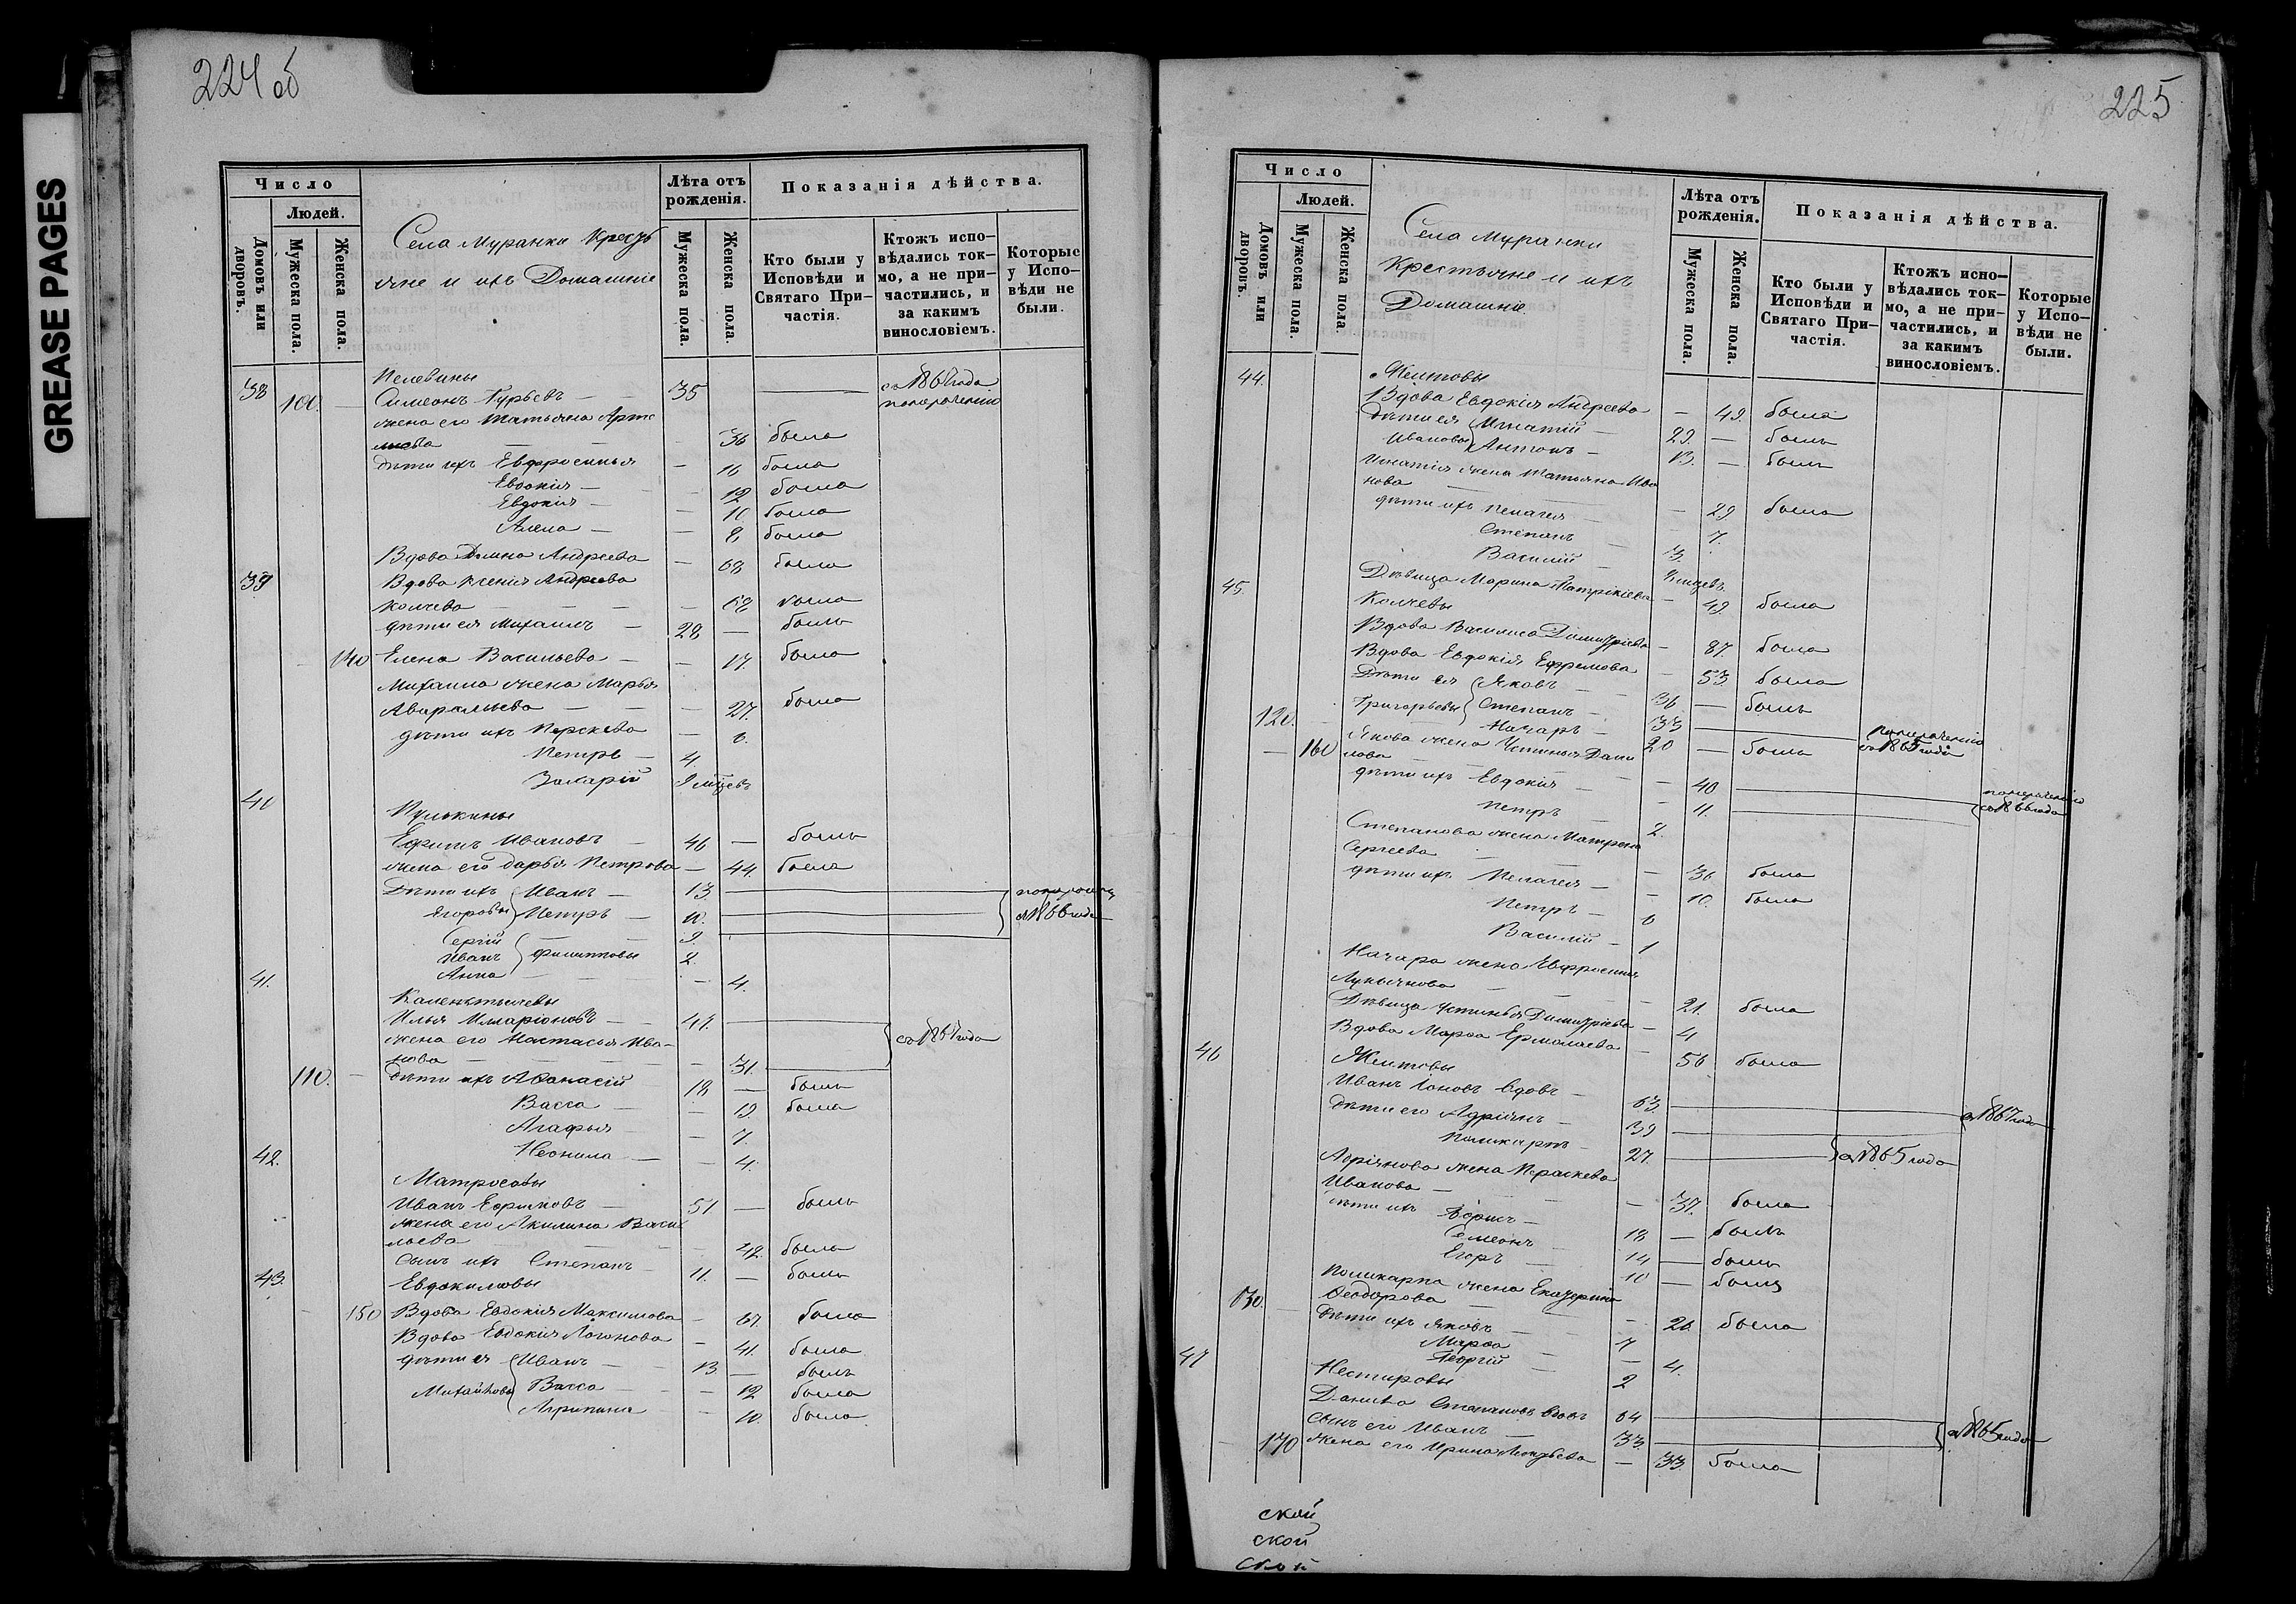 GREASE PAGES
224 об
Число
Людей.
Домовъ или дворовъ.
Мужеска пола.
Женска пола.
Села Муранки Кресть
яне и ихъ Домашніе
Лѣта отъ рожденія.
Мужеска пола.
Женска пола.
Показанія дѣйства.
Кто были у Исповѣди и Святаго Причастія.
Ктожъ исповѣдались токмо, а не причастились, и за какимъ винословіемъ.
Которые у Исповѣди не были.
38 Пелевины
100. Симеонъ Гурьевъ — 35
жена его Татьяна Арте
мова — 36 была
дѣти ихъ Евфросинья — 16 была
Евдокія — 12 была
Евдокія — 10 была
Алена — 8 была
Вдова Андреева — 68 была
39 Вдова Ксенія Андреева
Колчева — 62 была
дѣти ея Михаилъ — 28 — былъ
140 Елена Васильева — 17 была
Михаила жена Марья
— 27. была
дѣти ихъ Пораскева — 6.
Петръ — 4.
Захарій 9 мѣцевъ
40 Пулькины
Ефимъ Ивановъ — 46 — былъ
жена его Дарья Петрова — 44. была
Дѣти ихъ Иванъ — 13
Егоровы Петръ — 10. съ 1866 года
Сергій 9.
Иванъ Филипповы 2.
Анна — 4.
41. Илья Илларіоновъ — 47. съ 1867 года
жена его Настасья Ива-
нова — 31.
110. Дѣти ихъ Аѳанасій 18 — былъ
Васса — 13. была
Агафья — 7.
Неонила — 4.
42. Матросовы
Иванъ Ефимовъ — 51 — былъ
жена его Акилина Васи
льева — 42. была
сынъ ихъ Степанъ — 11. — былъ
43. Евдокимовы
150 Вдова Евдокія Максимова — 67. была
Вдова Евдокія Логинова — 41. была
дѣти ея Иванъ — 13 — былъ
Михайловы Васса — 12 была
Агрипина — 10. была
225
Число
Людей.
Домовъ или дворовъ.
Мужеска пола.
Женска пола.
Села Муранки
Крестьяне и ихъ
Домашніе
Лѣта отъ рожденія.
Мужеска пола.
Женска пола.
Показанія дѣйства.
Кто были у Исповѣди и Святаго Причастія.
Ктожъ исповѣдались токмо, а не причастились, и за какимъ винословіемъ.
Которые у Исповѣди не были.
44. Желтовы
Вдова Евдокія Андреева — 49. была
Дѣти ея Игнатій — 29. — былъ
Ивановы Антонъ — 13. — былъ
Игнатія жена Татьяна Ива
нова — 29. была
дѣти ихъ Пелагея — 7.
Степанъ — 3.
Василій
45. Дѣвица Марина Патрикіева — 49 была
Колчевы
Вдова Василиса Димитріева — 87. была
Вдова Евдокія Ефремова — 53 была
Дѣти ея Яковъ — 36 — былъ
Григорьевы Степанъ — 33 съ 1865 года
120. Назаръ — 20 — былъ
160 Якова жена Устинья Дани
лова — 40
дѣти ихъ Евдокія — 11. съ 1866 года
Петръ — 2.
Степанова жена Матрена
Сергеева — 36 была
дѣти ихъ Пелагея — 10. была
Петръ — 6
Василій — 1
Назара жена Евфросинья
Лукьянова — 21. была
Дѣвица Устинья Димитріева — 4
Вдова Марѳа Ермолаева — 56 была
46 Желтовы
Иванъ Іоновъ вдовъ — 63. съ 1867 года
дѣти его Адріянъ — 39
Поликарпъ — 27. съ 1865 года
Адріянова жена Праскева
Иванова — 37. была
дѣти ихъ — 18 — былъ
Семеонъ 14 — былъ
Егоръ — 10 — былъ
Поликарпа жена Екатерина
130. Ѳеодорова — 26 была
дѣти ихъ Яковъ — 7
Марѳа — 4.
Георгій 2
47 Нестеровы
Данило Степановъ вдовъ 64
сынъ его Иванъ — 33. съ 1865 года
170 жена его Ирина — 33. была
ской
ской
ской